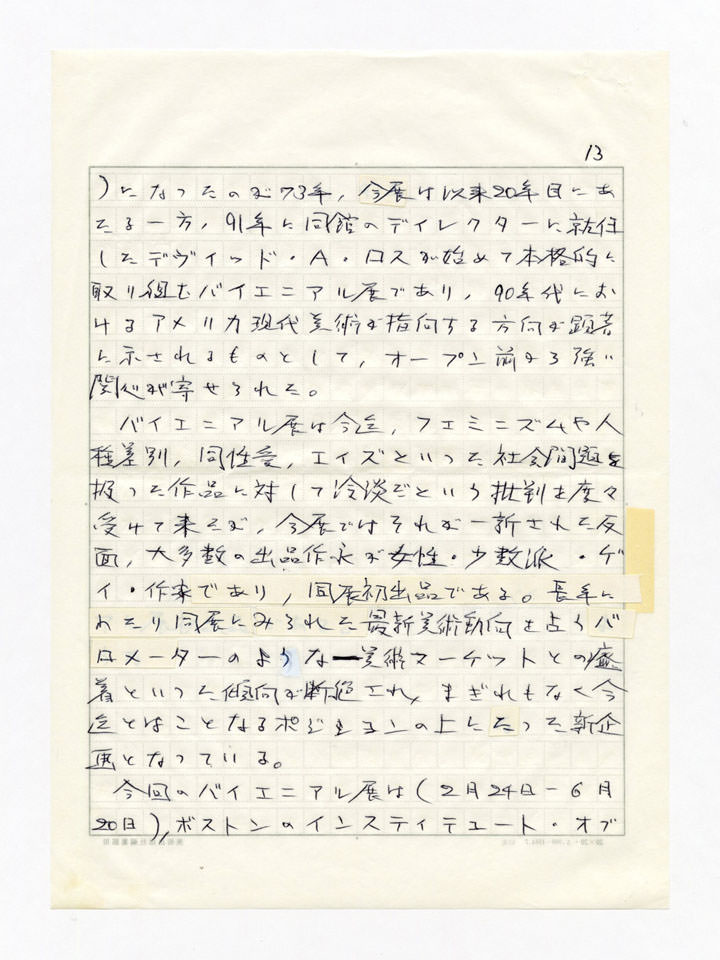 13
)になったのが73年，今展は以来20年目にあ
たる一方，91年に同館のディレクターに就任
したデヴィッド・A・ロスが始めて本格的に
取り組むバイエニアル展であり，90年代にお
けるアメリカ現代美術が指向する方向が顕著
に示されるものとして，オープン前から強い
関心が寄せられた。
バイエニアル展は今迄，フェミニズムや人
種差別，同性愛，エイズといった社会問題を
扱った作品に対して冷淡だという批判を度々
受けて来たが，今展ではそれが一新された反
面，大多数の出品作家が女性・少数派・ゲ
イ・作家であり，同展初出品である。長年に
わたり同展にみられた最新美術動向を占うバ
ロメーターのような美術マーケットとの癒
着といった傾向が断絶され，まぎれもなく今
迄とはことなるポジションの上にたった新企
画となっている。
今回のバイエニアル展は(2月24日-6月
20日),ボストンのインスティテュート・オブ